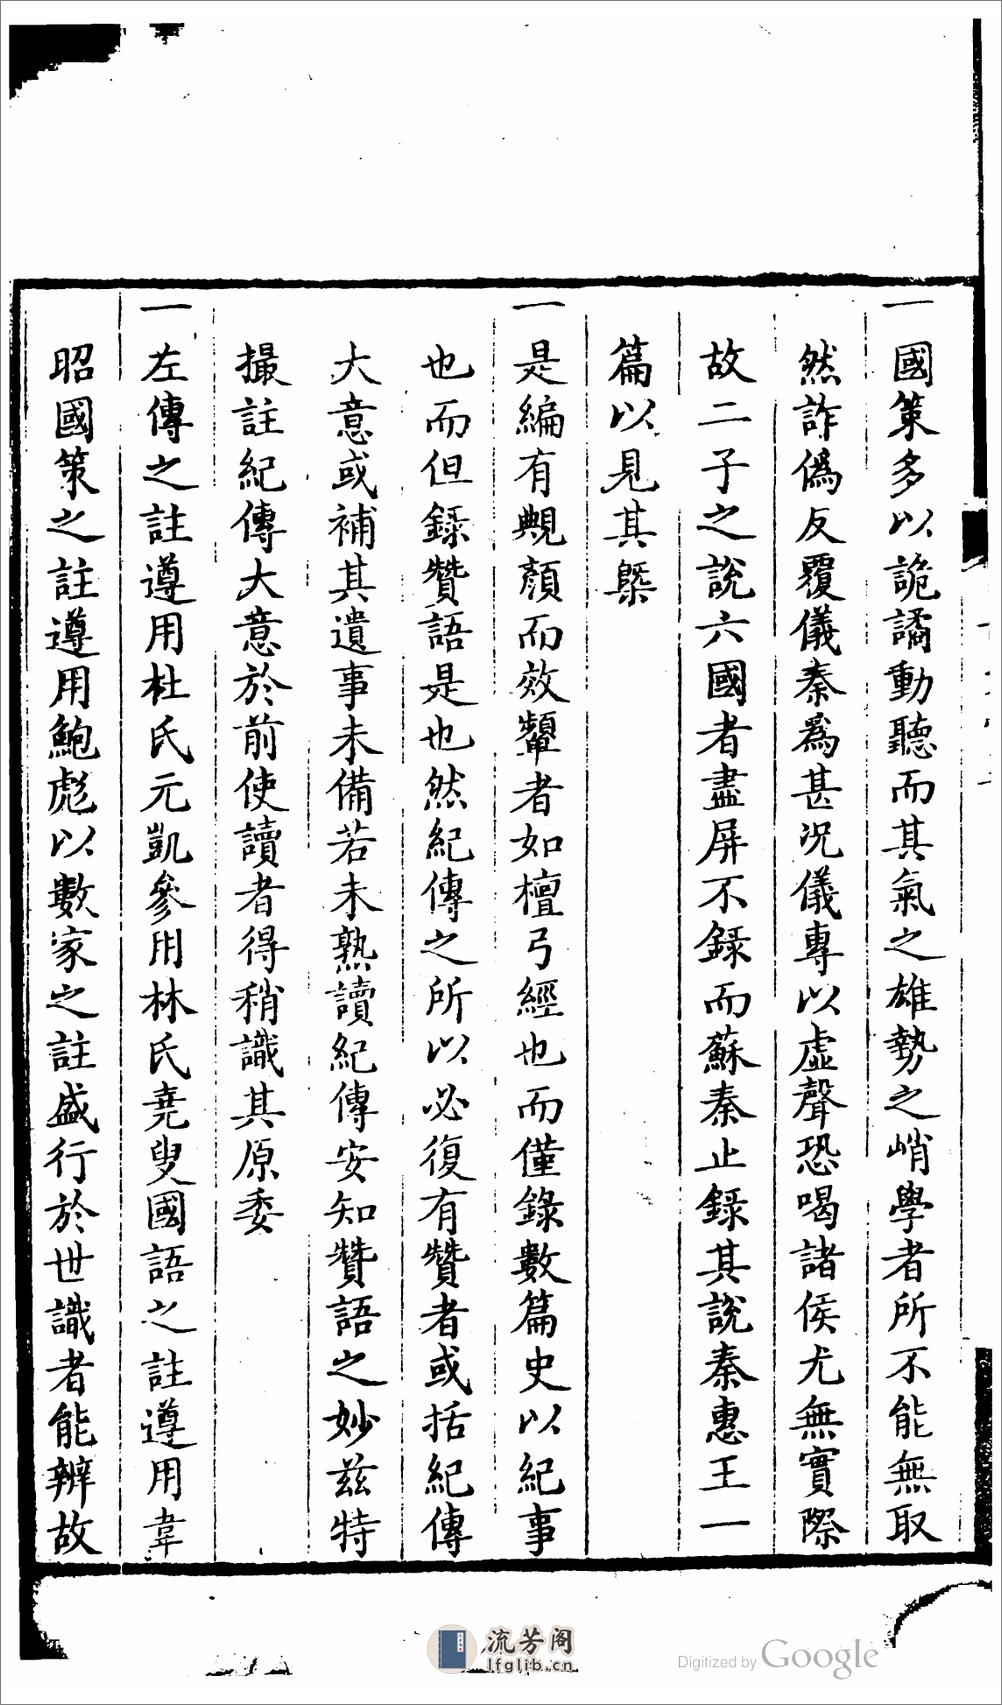 一國策多以詭譎動聽而其氣之雄勢之峭學者所不能無取
然詐僞反覆儀秦爲甚况儀專以虛聲恐喝諸侯尤無實際
故二子之說六國者盡屏不録而蘇秦止録其說秦惠王一
篇以見其槩
一是編有靦顏而效顰者如檀弓經也而僅錄數篇史以紀事
也而但錄贊語是也然紀傳之所以必復有贊者或括紀傳
大意或補其遺事未備若未熟讀紀傳安知贊語之妙茲特
撮註紀傳大意於前使讀者得稍識其原委
一左傳之註遵用杜氏元凱參用林氏堯叟國語之註遵用韋
昭國策之註遵用鮑彪以數家之註盛行於世識者能辨故
流芳阁
lfglib.cn
Digitized by Google